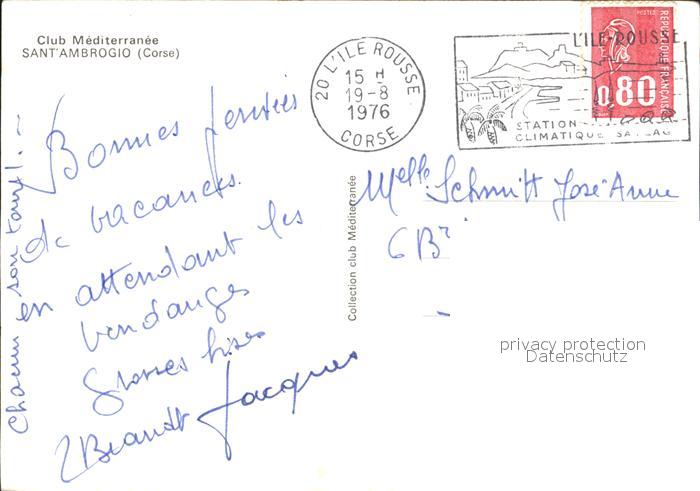 Club Méditerranée
SANT'AMBROGIO (Corse)
20 L'ILE ROUSSE
15 H
19-8
1976
CORSE
L'ILE-ROUSSE
STATION
CLIMATIQUE
POSTES
REPUBLIQUE FRANCAISE
0,80
Bonnes
de vacances.
en attendant les
vendanges
Grosses bises
Brandt Jacques
Chacun son tour! :-
Collection club Méditerranée
Melle Schmitt José Anne
6 B
privacy protection
Datenschutz